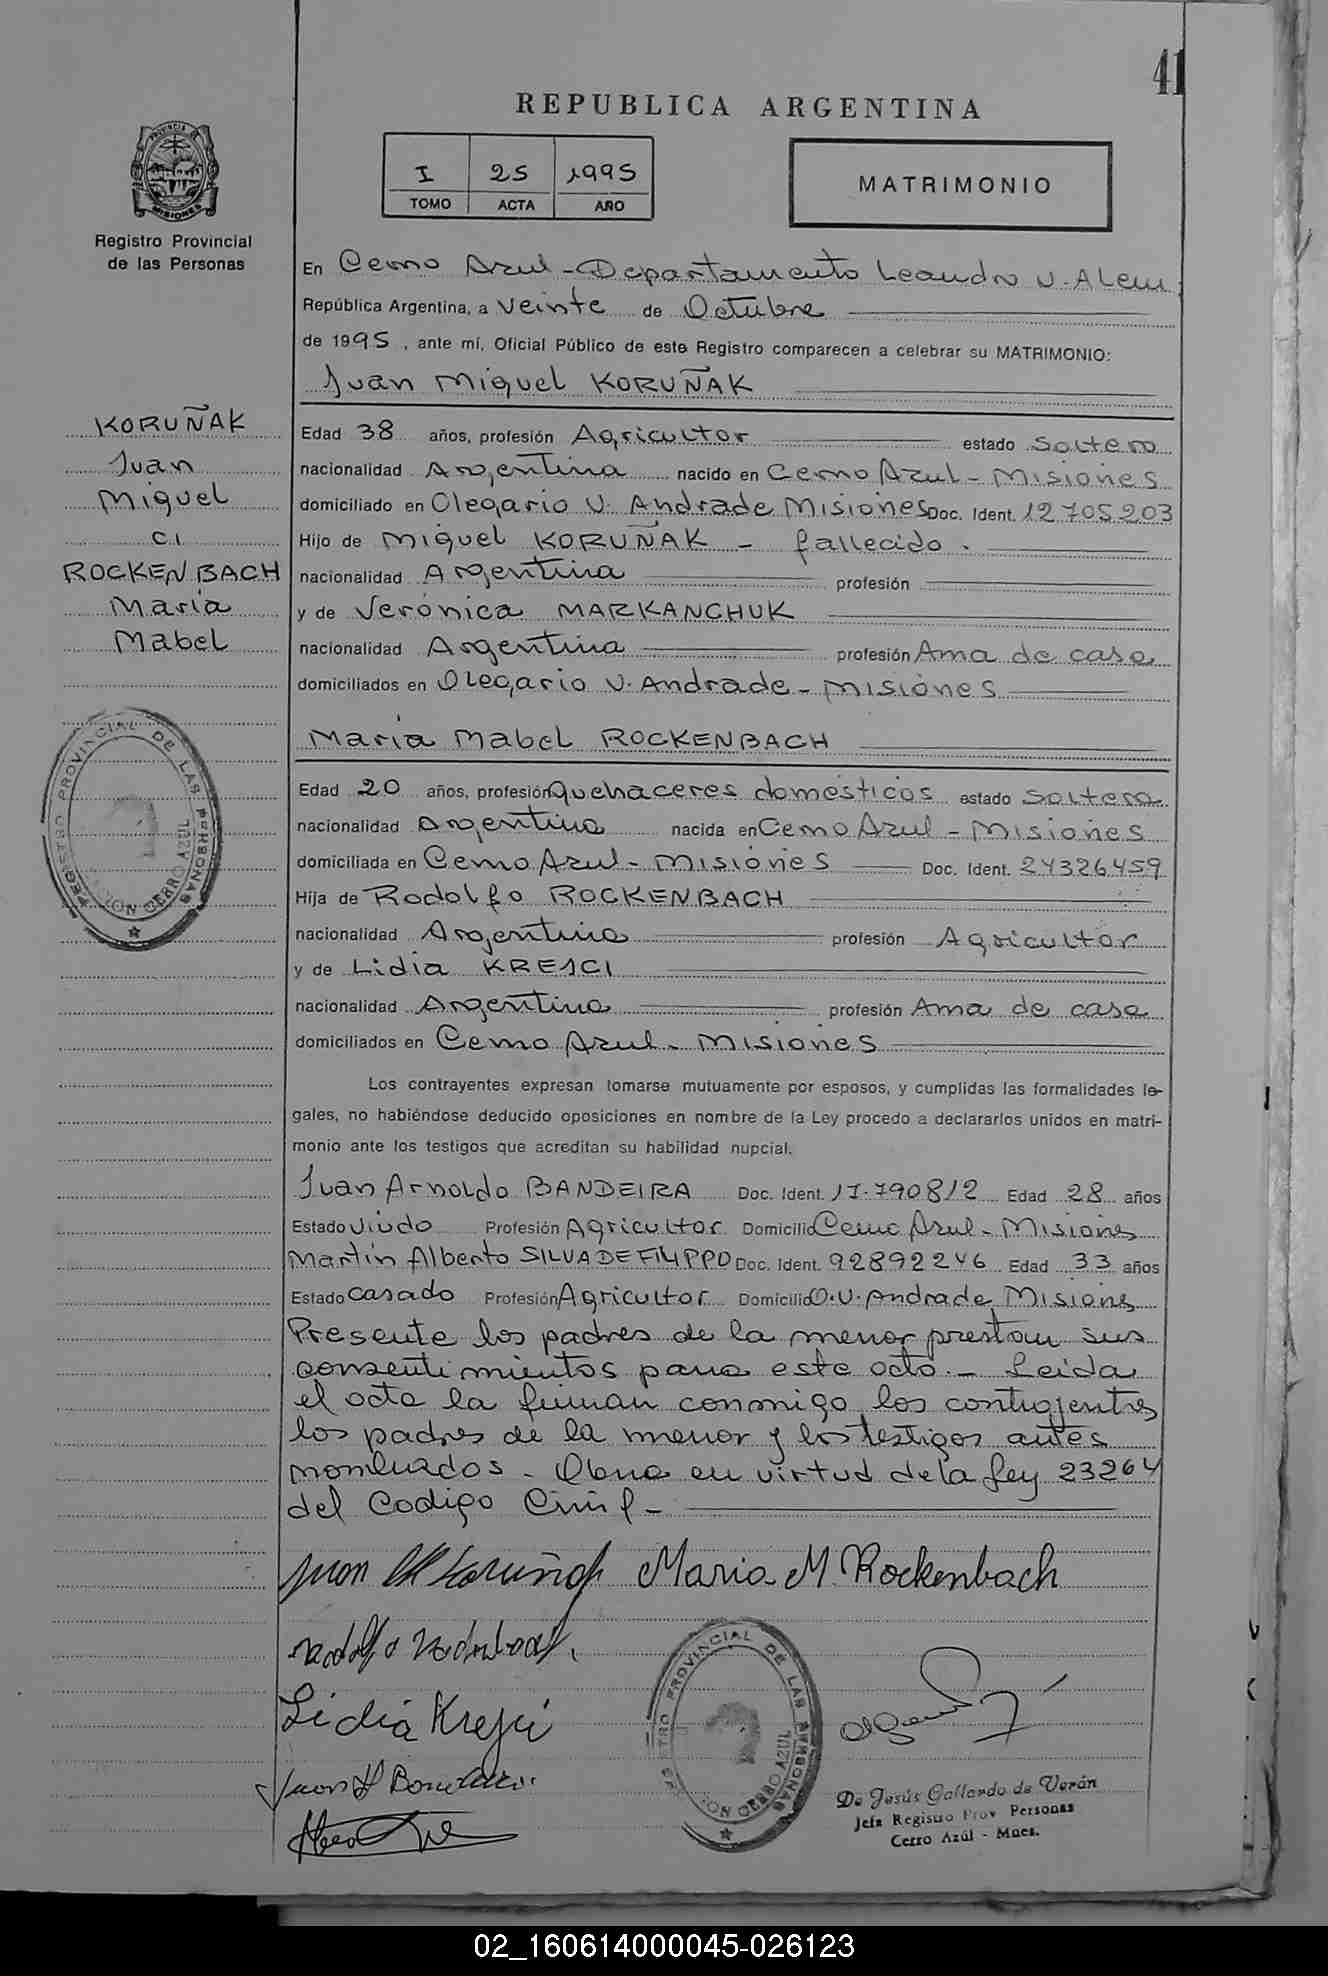 41
REPUBLICA ARGENTINA
I 25 1995
TOMO ACTA AÑO
MATRIMONIO
PROVINCIA DE MISIONES
Registro Provincial
de las Personas
En Cerro Azul - Departamento Leandro N. Alem
República Argentina, a veinte de Octubre
de 1995, ante mí, Oficial Público de este Registro comparecen a celebrar su MATRIMONIO:
Juan Miguel KORUÑAK
KORUÑAK
Juan
Miguel
c/
ROCKENBACH
María
Mabel
Edad 38 años, profesión Agricultor estado soltero
nacionalidad Argentina nacido en Cerro Azul - Misiones
domiciliado en Olegario V. Andrade Misiones Doc. Ident. 12705203
Hijo de Miguel KORUÑAK - fallecido.
nacionalidad Argentina profesión
y de Verónica MARKANCHUK
nacionalidad Argentina profesión Ama de casa
domiciliados en Olegario V. Andrade - Misiones
María Mabel ROCKENBACH
Edad 20 años, profesión quehaceres domésticos estado soltera
nacionalidad Argentina nacida en Cerro Azul - Misiones
domiciliada en Cerro Azul - Misiones Doc. Ident. 24326459
Hija de Rodolfo ROCKENBACH
nacionalidad Argentina profesión Agricultor
y de Lidia KREJCI
nacionalidad Argentina profesión Ama de casa
domiciliados en Cerro Azul - Misiones
REGISTRO PROVINCIAL DE LAS PERSONAS
CERRO AZUL
Los contrayentes expresan tomarse mutuamente por esposos, y cumplidas las formalidades le-
gales, no habiéndose deducido oposiciones en nombre de la Ley procedo a declararlos unidos en matri-
monio ante los testigos que acreditan su habilidad nupcial.
Juan Arnoldo BANDEIRA Doc. Ident. 17.790812 Edad 28 años
Estado viudo Profesión Agricultor Domicilio Cerro Azul - Misiones
Martín Alberto SILVA DE FILIPPO Doc. Ident. 92892246 Edad 33 años
Estado casado Profesión Agricultor Domicilio O.V. Andrade Misiones
Presente los padres de la menor prestan sus
consentimientos para este acto. - Leida
el acta la firman conmigo los contrayentes
los padres de la menor y los testigos antes
nombrados. - Obra en virtud de la ley 23264
del Codigo Civil -
Juan M Koruñak Maria M. Rockenbach
Rodolfo Rockenbach
Lidia Krejci
Juan A Bandeira
REGISTRO PROVINCIAL DE LAS PERSONAS
CERRO AZUL
De Jesús Gallardo de Verón
Jefa Registro Prov Personas
Cerro Azúl - Mnes.
02_160614000045-026123